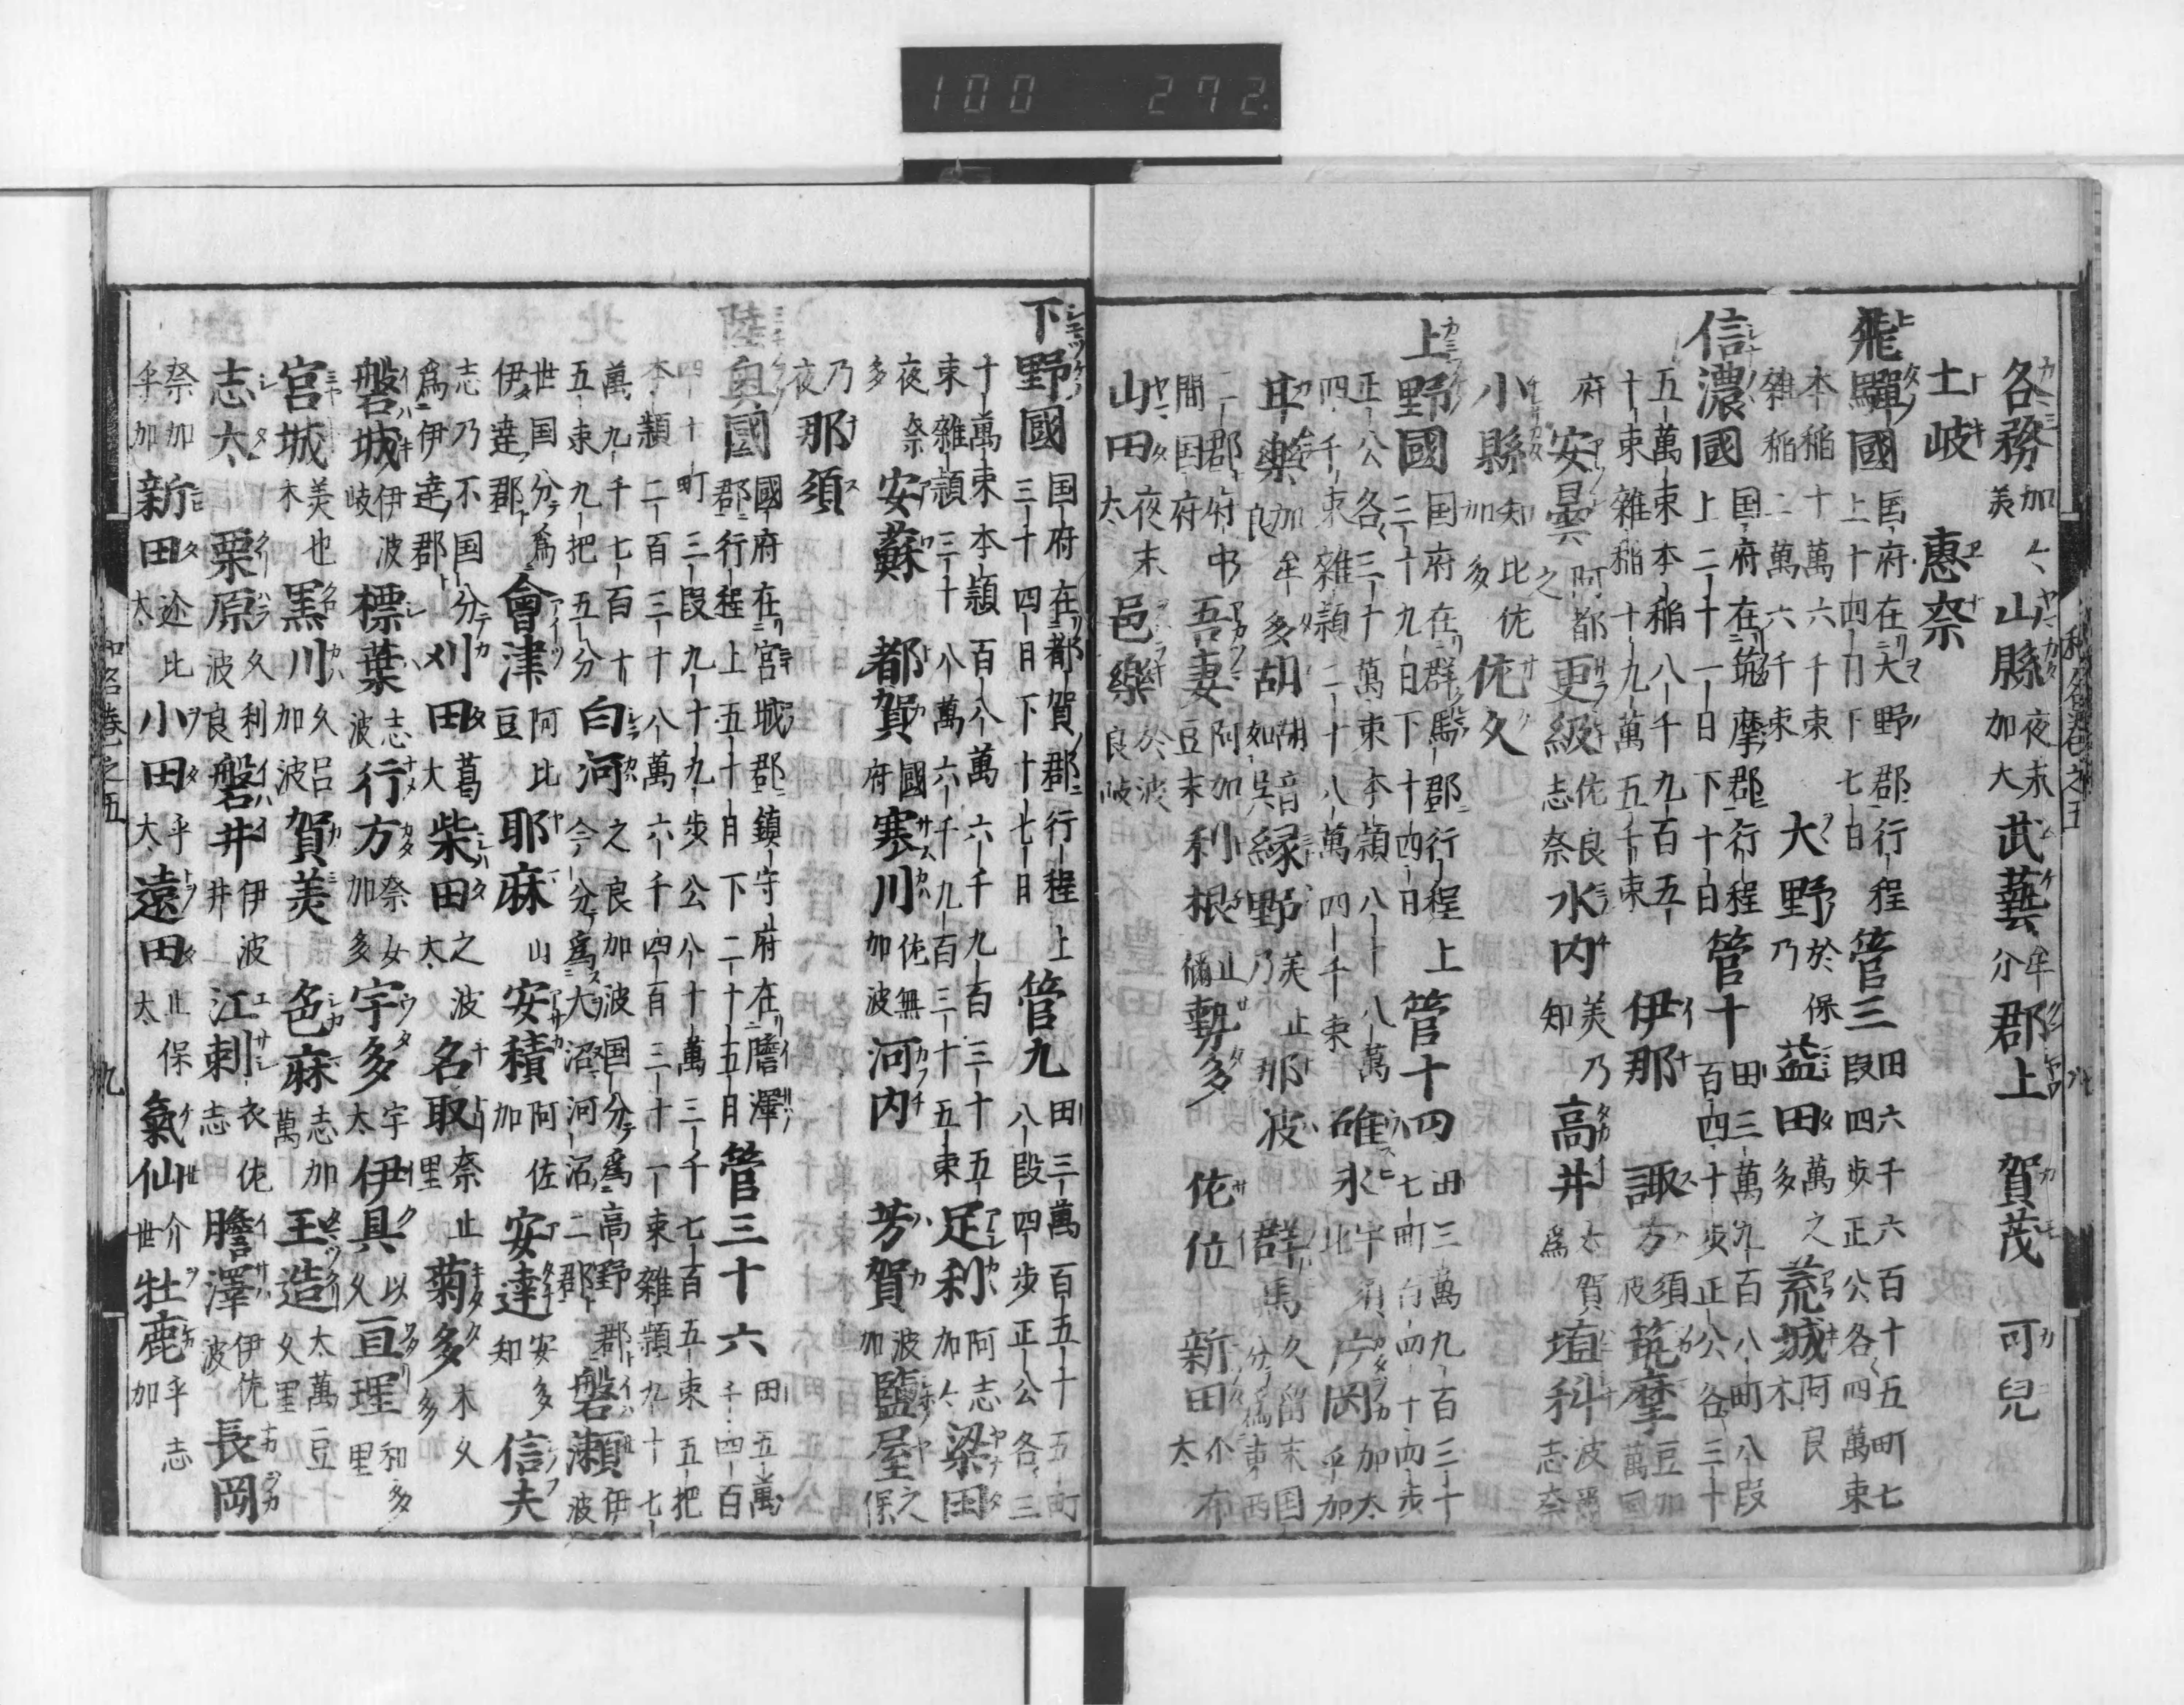 100 272.
各務加々美 山縣夜末加大 武藝牟介 郡上 賀茂 可兒
土岐 惠奈
飛驒國国府在大野郡行程上十四日下七日 管三田六千六百十五町七段四歩正公各四萬束
本稲十萬六千束雑稲二萬六千束 大野於保乃 益田萬之多 荒城阿良木
信濃國国府在筑摩郡行程上二十一日下十日 管十田三萬九百八町八段百四十歩正公各三十
五萬束本稲八十千九百五十束雑稲十九萬五千束 伊那 諏方須波 筑摩豆加萬国
府 安曇阿都之 更級佐良志奈 水内美乃知 高井太賀為 埴科波爾志奈
小縣知比佐加多 佐久
上野國国府在群馬郡行程上三十九日下十四日 管十四田三萬九百三十七町百四十四歩
正公各三十萬束本穎八十八萬四千束雑穎二十八萬四千束 碓氷 片岡加太乎加
甘樂加牟良 多胡胡音如呉 緑野美止乃 那波 群馬久留末国分為東西
二郡府中間国府 吾妻阿加豆末 利根止禰 勢多 佐位 新田介布太
山田夜末太 邑樂於波良岐
和名巻之五 八
下野國国府在都賀郡行程上三十四日下十七日 管九田三萬百五十五町八段四歩正公各三
十萬束本穎百八萬六千九百三十五束雑穎三十八萬六千九百三十五束 足利阿志加々 梁田
夜奈多 安蘇 都賀國府 寒川佐無加波 河内 芳賀波加 鹽屋之保
乃夜 那須
陸奥國國府在宮城郡鎮守府在膽澤郡行程上五十日下二十五日 管三十六田五萬千四百
四十町三段九十九歩公八十萬三千七百五束五把
本穎二百三十八萬六千四百三十一束雑穎九十七
萬九千七百十五束九把五分 白河之良加波国分為高野郡今分為大沼河沼二郡 磐瀬伊波
世国分為伊達郡 會津阿比豆 耶麻山 安積阿佐加 安達安多知 信夫
志乃不国分為伊達郡 刈田葛大 柴田之波太 名取奈止里 菊多木久多
磐城伊波岐 標葉志波 行方奈女加多 宇多宇太 伊具以久 亘理和多里
宮城美也木 黒川久呂加波 賀美 色麻志加萬 玉造太萬豆久里
志太 栗原久利波良 磐井伊波井 江刺衣佐志 膽澤伊佐波 長岡
奈加乎加 新田迩比太 小田乎太 遠田止保太 氣仙介世 牡鹿乎志加
和名巻之五 九